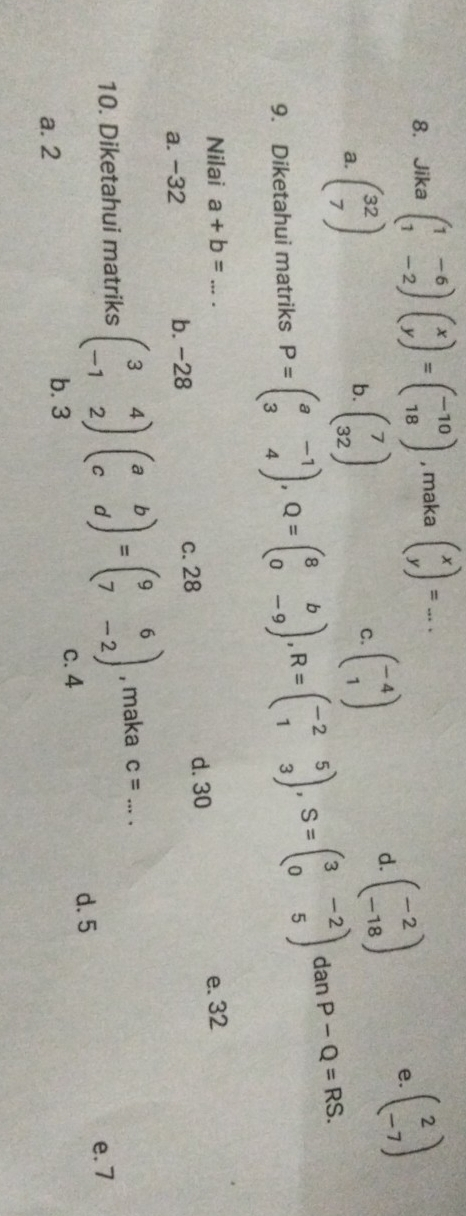 8. Jika $\begin{pmatrix} 1 & -6 \\ 1 & -2 \end{pmatrix} \begin{pmatrix} x \\ y \end{pmatrix} = \begin{pmatrix} -10 \\ 18 \end{pmatrix}$, maka $\begin{pmatrix} x \\ y \end{pmatrix}$ = ... .
a. $\begin{pmatrix} 32 \\ 7 \end{pmatrix}$ b. $\begin{pmatrix} 7 \\ 32 \end{pmatrix}$ c. $\begin{pmatrix} -4 \\ 1 \end{pmatrix}$ d. $\begin{pmatrix} -2 \\ -18 \end{pmatrix}$ e. $\begin{pmatrix} 2 \\ -7 \end{pmatrix}$
9. Diketahui matriks P = $\begin{pmatrix} a & -1 \\ 3 & 4 \end{pmatrix}$, Q = $\begin{pmatrix} 8 & b \\ 0 & -9 \end{pmatrix}$, R = $\begin{pmatrix} -2 & 5 \\ 1 & 3 \end{pmatrix}$, S = $\begin{pmatrix} 3 & -2 \\ 0 & 5 \end{pmatrix}$ dan P − Q = RS.
Nilai a + b = ... .
a. −32 b. −28 c. 28 d. 30 e. 32
10. Diketahui matriks $\begin{pmatrix} 3 & 4 \\ -1 & 2 \end{pmatrix} \begin{pmatrix} a & b \\ c & d \end{pmatrix} = \begin{pmatrix} 9 & 6 \\ 7 & -2 \end{pmatrix}$, maka c = ... .
a. 2 b. 3 c. 4 d. 5 e. 7